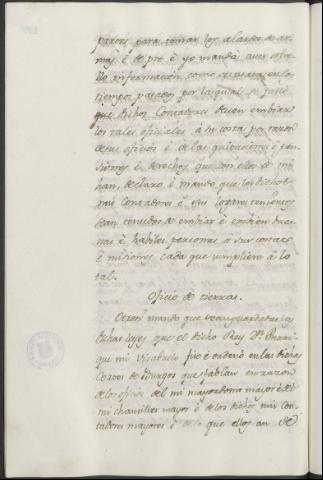 partes para tomar los alardes de ar-
mas è de pre è yo mandè aver sobre
ello informacion como se usara en los
tiempos pasados por la qual se falló
que dichos Contadores deven embiar
los tales oficiales à su costa por razon
de sus oficios è de las quitaciones è pen-
siones è derechos que con ellos de mi
han, declaro è mando que los dichos
mis Contadores è sus lugartenientes
sean tenudos de embiar è embien bue-
nas è habiles personas à sus costas
è misiones cada que cumpliere à lo
tal.
Oficio de tierras.
Otrosi mando que sean guardadas las
dichas leyes que el dicho Rey Dn. Enrri-
que mi Visabuelo fizo è ordenò en las dichas
Cortes de Burgos que fablan en razon
de los oficios del mi mayordomo mayor è del
mi chanciller mayor è de los dichos mis Con-
tadores mayores è de lo que ellos an de